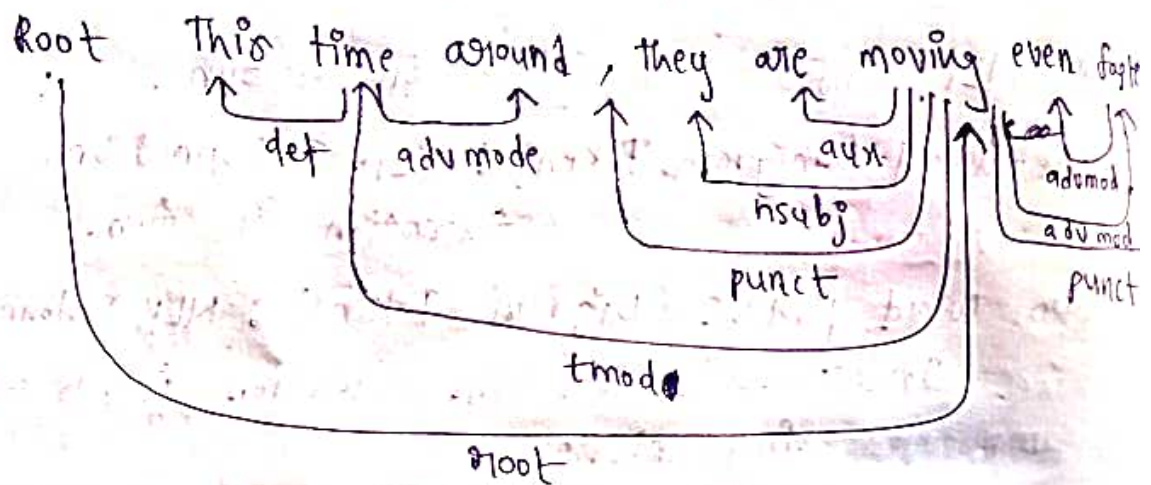 Root This time around, they are moving even faste
def advmode aux. advmod
nsubj advmod
punct punct
tmod
root